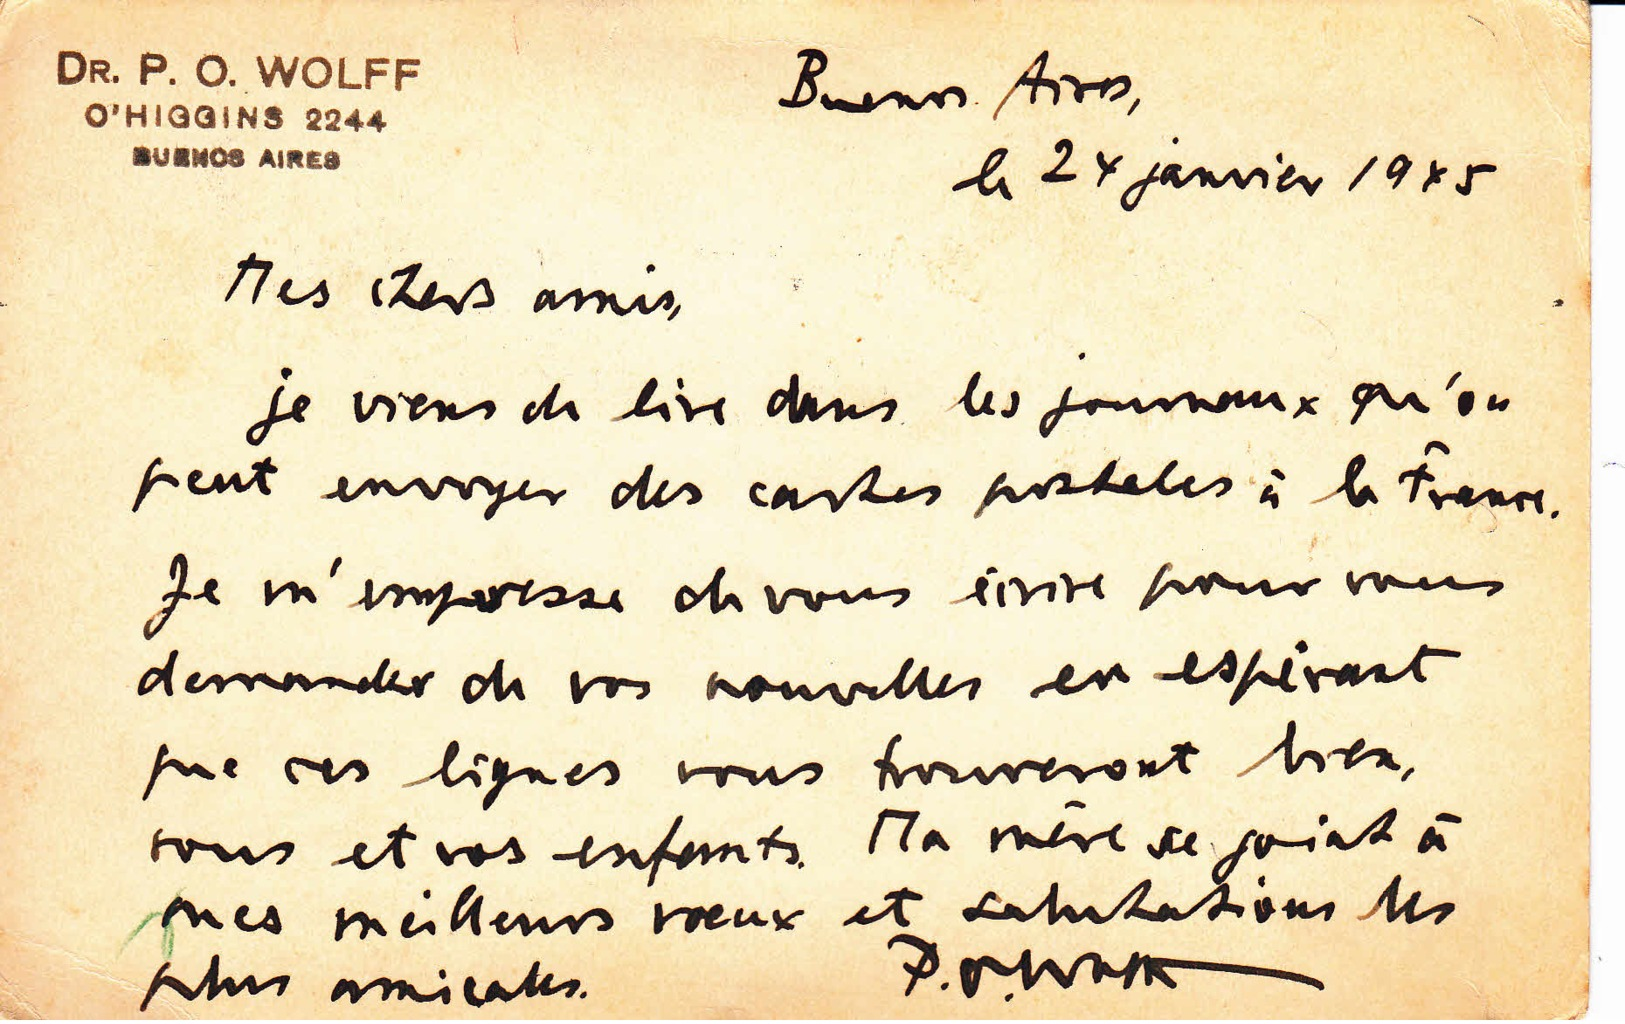 DR. P. O. WOLFF
O'HIGGINS 2244
BUENOS AIRES
Buenos Aires,
le 24 janvier 1945
Mes chers amis,
je viens de lire dans les journaux qu'on
peut envoyer des cartes postales à la France.
Je m'empresse de vous écrire pour vous
demander de vos nouvelles en espérant
que ces lignes vous trouveront bien,
vous et vos enfants. Ma mère se joint à
mes meilleurs vœux et salutations les
plus amicales. P.O. Wolff